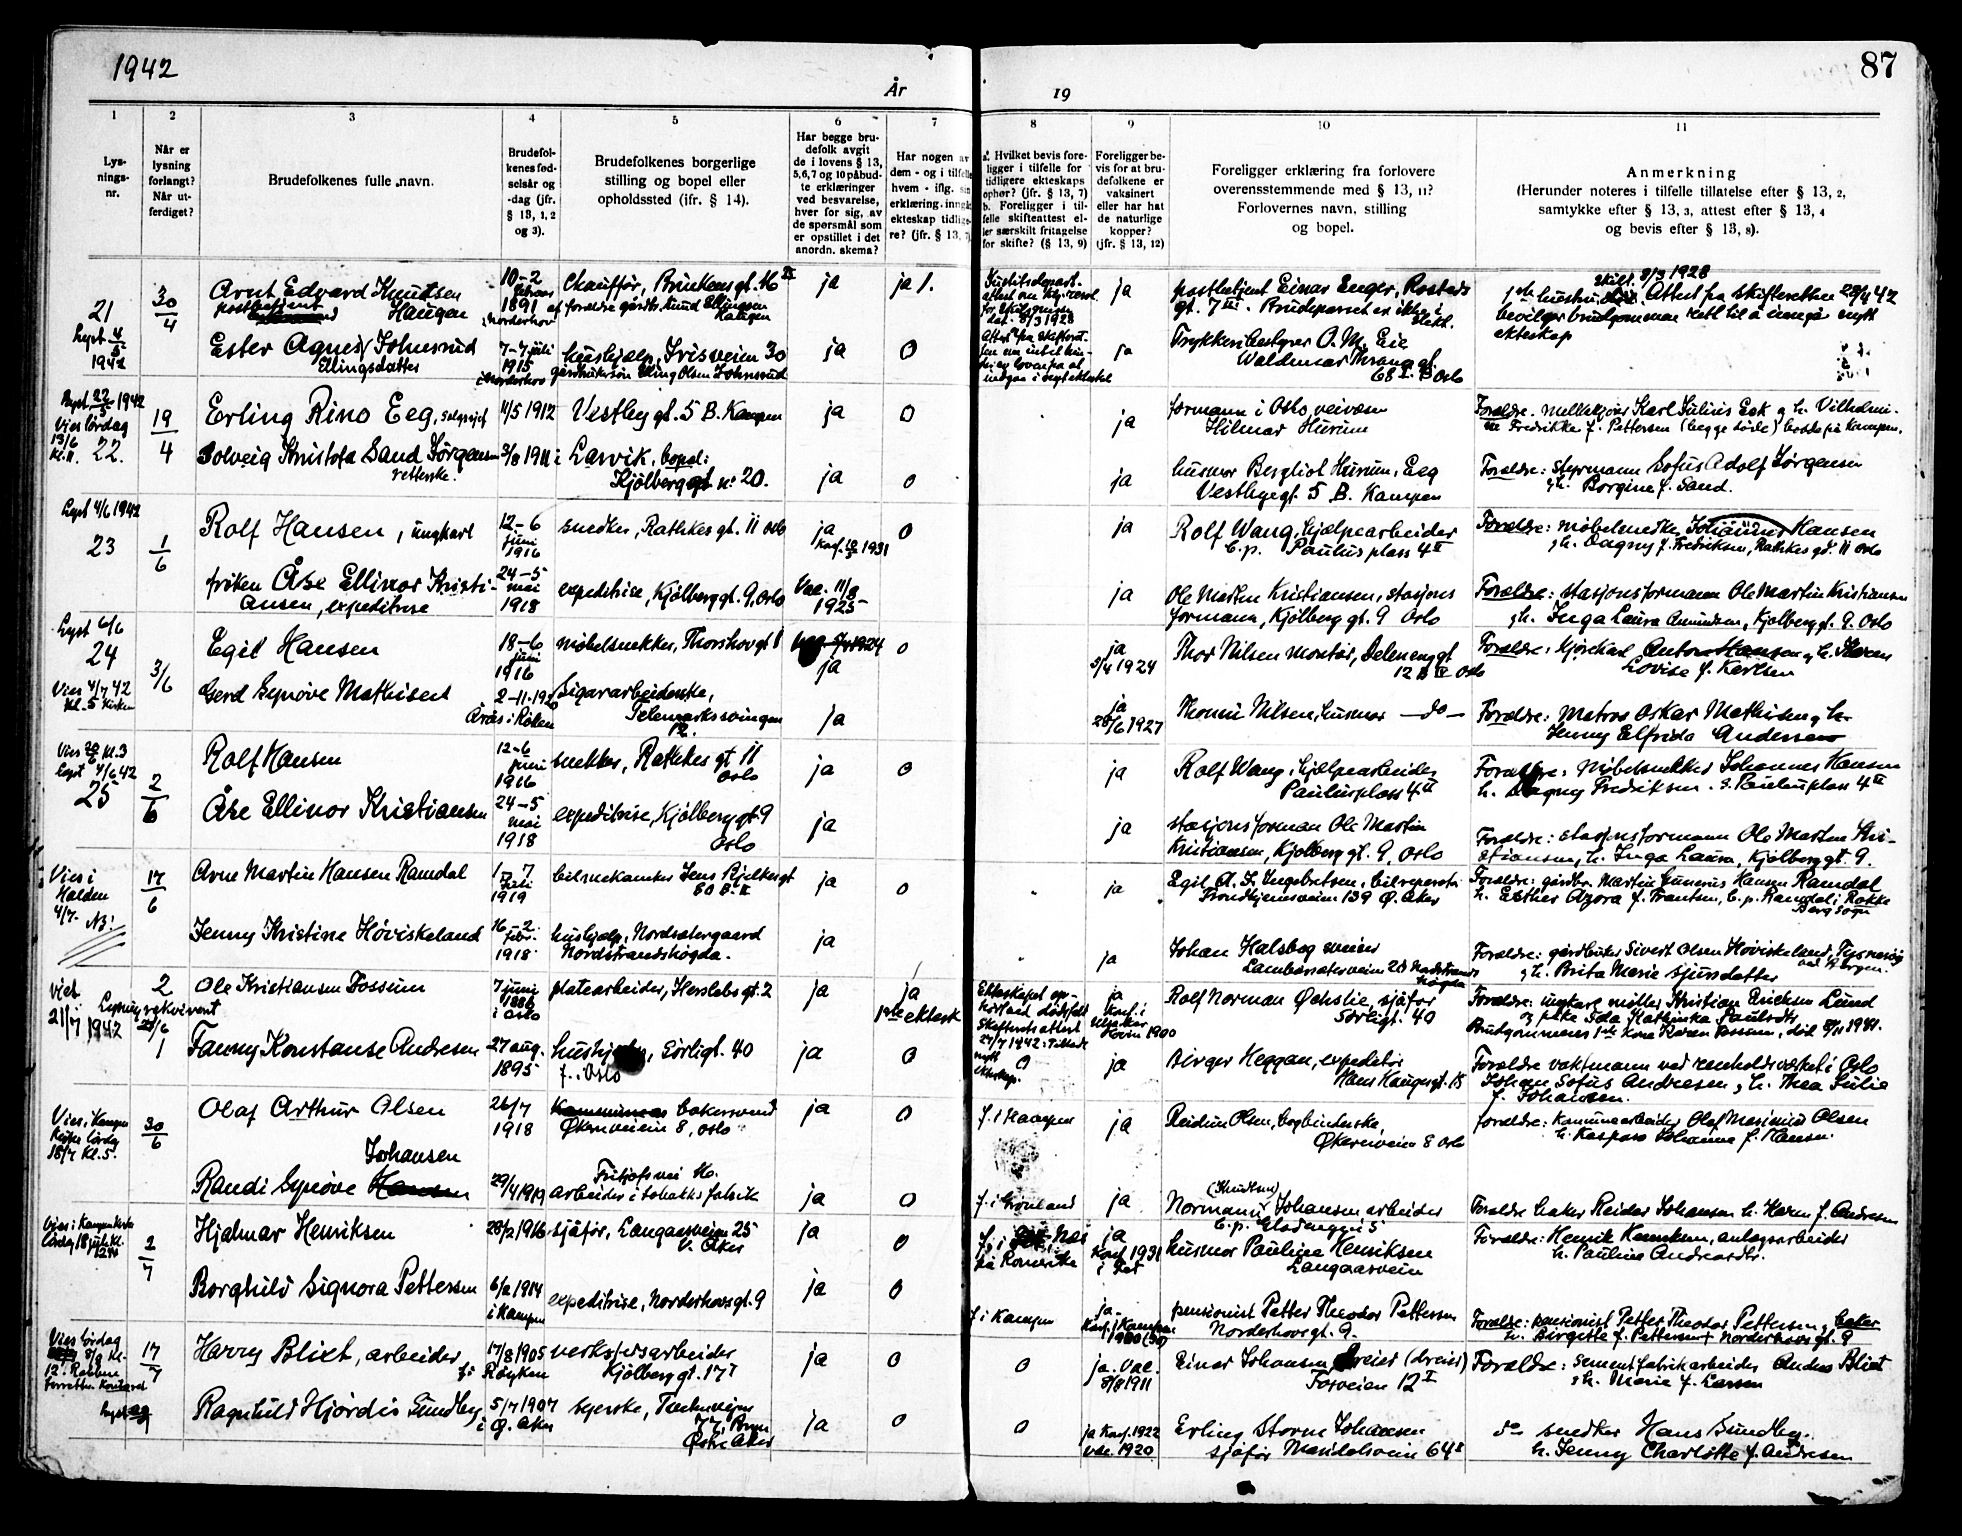 1942
87
År
19
1
2
3
4
5
6
7
8
9
10
11
Lys-
nings-
nr.
Når er
lysning
forlangt?
Når ut-
ferdiget?
Brudefolkenes fulle navn.
Brudefol-
kenes fød-
selsår og
-dag (jfr.
§ 13, 1, 2
og 3).
Brudefolkenes borgerlige
stilling og bopel eller
opholdssted (jfr. § 14).
Har begge bru-
defolk avgit
de i lovens § 13,
5, 6, 7 og 10 påbud-
te erklæringer
ved besvarelse,
hver for sig, av
de spørsmål som
er opstillet i det
anordn. skema?
Har nogen av
dem - og i tilfelle
hvem - iflg. sin
erklæring, inngåt
ekteskap tidlige-
re? (jfr. § 13, 7).
a. Hvilket bevis fore-
ligger i tilfelle for
tidligere ekteskaps
ophør? (jfr. § 13, 7)
b. Foreligger i til-
felle skifteattest el-
ler særskilt fritagelse
for skifte? (§ 13, 9)
Foreligger be-
vis for at bru-
defolkene er
vaksinert
eller har hat
de naturlige
kopper?
(jfr. § 13, 12)
Foreligger erklæring fra forlovere
overensstemmende med § 13, 11?
Forlovernes navn, stilling
og bopel.
Anmerkning
(Herunder noteres i tilfelle tillatelse efter § 13, 2,
samtykke efter § 13, 3, attest efter § 13, 4
og bevis efter § 13, 8).
21
Lyst 4/5
1942
30/4
Arnt Edvard Knutsen
Haugen
10-2
1891
Chauffør,
af foreldre gårdbr. Knud Ellingsen
Haugen
ja
ja 1.
ja
postbetjent Einar Enger, Rosteds
gt. 7 III. Brudeparret er ikke i
slekt.
skilt 8/3 1928
1ste hustru Attest fra skifteretten 28/4 42
bevilger brudgommen rett til å inngå nytt
ekteskap
Ester Agnes Johnsrud
Ellingsdatter
7-7 juli
1915
i Norderhov
hushjelp, Irisveien 30
gårdbrukersøn Elling Olsen Johnsrud
ja
0
ja
Trykkeribestyrer O. M. Eie
Waldemar Thranes gt.
68 I Oslo
Lyst 22/5 1942
Vies lørdag
13/6
kl. 22.
19/4
Erling Rino Eeg,
11/5 1912
Vestby gt. 5 B. Kampen
ja
0
ja
formann i Oslo veivesen
Hilmar Hurum
Foreldre. møllekjører Karl Julius Eek og h. Vilhelmi-
ne Fredrikke f. Pettersen (begge døde) bodde på Kampen.
Solveig Kristofa Sand Jørgensen
3/8 1911 i
Larvik, bopel:
Kjølberggt nr 20.
ja
0
ja
husmor Bergliot Hurum, Eeg
Vestbygt. 5 B. Kampen
Foreldre: styrmann Sofus Adolf Jørgensen
og h. Borgine f. Sand.
Lyst 4/6 1942
23
1/6
Rolf Hansen, ungkarl
12-6
juni
1916
snedker, Rathkes gt. 11 Oslo
ja
1931
0
ja
Rolf Wang, hjelpearbeider
b. p. Paulus plass 4 II
Foreldre: møbelsnedker Johannes Hansen
og h. Dagny f. Fredriksen, Rathkes gt. 11 Oslo
frøken Åse Ellinor Kristi-
ansen, expeditrise
24-5
mai
1918
expeditrise, Kjølberggt. 9, Oslo
Vac. 11/8
1925
ja
Ole Martin Kristiansen, stasjons
formann, Kjølberggt. 9 Oslo
Foreldre: stasjonsformann Ole Martin Kristiansen
og h. Inga Laura Amundsen, Kjølberggt. 9. Oslo
Lyst 6/6
24
3/6
Egil Hansen
18-6
juni
1916
møbelsnekker, Thorshov gt 1
ja
0
ja
9/4 1924
Thor Nilsen montør, Delenenggt
12 B IV Oslo
Foreldre: kjørekarl Anton Hansen og h. Karen
Lovise f. Karlsen
Vies 4/7 42
kl. 5 Kirken
Gerd Synøve Mathisen
2-11-1920
Årøs i Røken
Sigararbeiderske,
Telemarkssvingen
12.
ja
ja
28/6 1927
Thomine Nilsen, husmor — do —
Foreldre: Matros Oskar Mathisen og h.
Jenny Elfrida Andersen
Vies 20/6 kl. 3
Lyst 4/6 42
25
2/6
Rolf Hansen
12-6
juni
1916
snekker, Rathkes gt 11
Oslo
ja
0
ja
Rolf Wang, hjelpearbeider
Paulusplass 4 II
Foreldre: Møbelsnekker Johannes Hansen
h. Dagny Fredriksen. s. Paulusplass 4 II
Åse Ellinor Kristiansen
24-5
mai
1918
expeditrise, Kjølberggt. 9
Oslo
ja
ja
stasjonsforman Ole Martin
Kristiansen, Kjølberggt. 9, Oslo
Foreldre: stasjonsformann Ole Martin Kri-
stiansen, h. Inga Laura, Kjølberggt. 9.
Vies i
Halden
4/7. NB:
17/6
Arne Martin Hansen Ramdal
1-7
juli
1919
bilmekaniker Jens Bjelkesgt
60 B. II
ja
0
ja
Egil A. F. Ingebretsen, bilreparatør
Trondhjemsveien 139 Ø. Aker
Foreldre: gårdbr. Martin Gunerius Hansen Ramdal
h. Esther Azora f. Frantsen, b. p. Ramdal i Rokke
Berg sogn
Jenny Kristine Høviskeland
16-2
febr.
1918
hushjelp, Nordsetergaard
Nordstrandshøgda.
ja
ja
Johan Halsbog sveiser
Lambertseterveien 28 Nordstrands
høgda
Foreldre: gårdbruker Sivert Olsen Høviskeland, Tysnesøy
ved Bergen.
og h. Brita Marie Sjursdatter
viet
21/7 1942
Lysning rekvirert
25/6
2
1
Ole Kristiansen Fossum
7 juni
1886
i Oslo
platearbeider, Herslebs gt. 2
ja
ja
1ste ektesk
ja
Konf. i
Ullensaker
1900
Rolf Norman Øchslie, sjåfør
Sørligt. 40
Foreldre: ungkare møller Kristian Ericksen Lund
og pike Ida Kathinka Paulsdtr.
Brudgommens 1ste kone Karen Fossum, død 8/11 1941.
Fanny Konstanse Andresen
27 aug.
1895
hushj, Sørligt. 40
f. i Oslo
ja
0
0
ja
Birger Heggan, expeditør
Hans Haugesgt. 15
Foreldre vaktmann ved renholdsverket i Oslo
Johan Sofus Andresen og h. Thea Julie
f. Johansen.
Vies i Kampen
Kirke lørdag
18/7 kl. 5.
30/6
Olaf Arthur Olsen
26/7
1918
bakersvend
Økernveien 8, Oslo
ja
0
f. i Kampen
ja
Reidun Olsen, bogbinderske,
Økernveien 8 Oslo
foreldre: Kommunearbeider Olaf Marinius Olsen
h. Kaspara Johanna f. Hansen.
Johansen
Randi Synøve Hansen
29/4 1919
Fritjofs vei 16.
arbeider i tobakksfabrik
ja
0
f. i Grønland
ja
(Knudsen)
Norman Johansen arbeider
b. p. Gladenggt 5
Foreldre baker Reidar Johansen h. Karen f. Andresen
Vies i Kampen Kirke
lørdag 18 juli kl.
2/7
Hjalmar Henriksen
28/2 1916
sjåfør, Langaasveien 25
V. Aker
ja
0
f. i Nes
på Romerike
ja
Konf 1931
i Fet
husmor Pauline Henriksen
Langaasveien
Foreldre: Henrik Henriksen, anlegsarbeider
h. Pauline Andreasdtr.
Borghild Signora Pettersen
6/2 1914
i Kampen
expeditrise, Norderhovsgt. 9
ja
0
f i Kampen
ja.
Konf. i Kampen
pensionist Petter Theodor Pettersen
Norderhovsgt. 9.
Foreldre: pensionist Petter Theodor Pettersen, baker
h. Birgitte f. Pettersen + Norderhovs gt. 9
Vies lørdag
8/8 kl.
12.
17/7
Harry Blixt, arbeider
17/8 1905
f. i Røyken
verkstedsarbeider
Kjølberggt. 17 I
ja
0
0
ja. Vac.
8/9 1911
Einar Johansen, Dreier (dreier)
Torveien 12 I
Foreldre: Sementfabrikarbeider Anders Blixt
og h. Marie f. Larsen
Ragnhild Hjørdis Sundby
5/7 1907
i Ø. Aker
syerske, Tvetenveien
77, Bryn
Østre Aker
ja
0
0
ja Konf. 1922
vac. 1920
Erling Storm Johansen
sjåfør Maridalsveien 64 I
do snedker Hans Sundby.
h. Jenny Charlotte f. Andresen